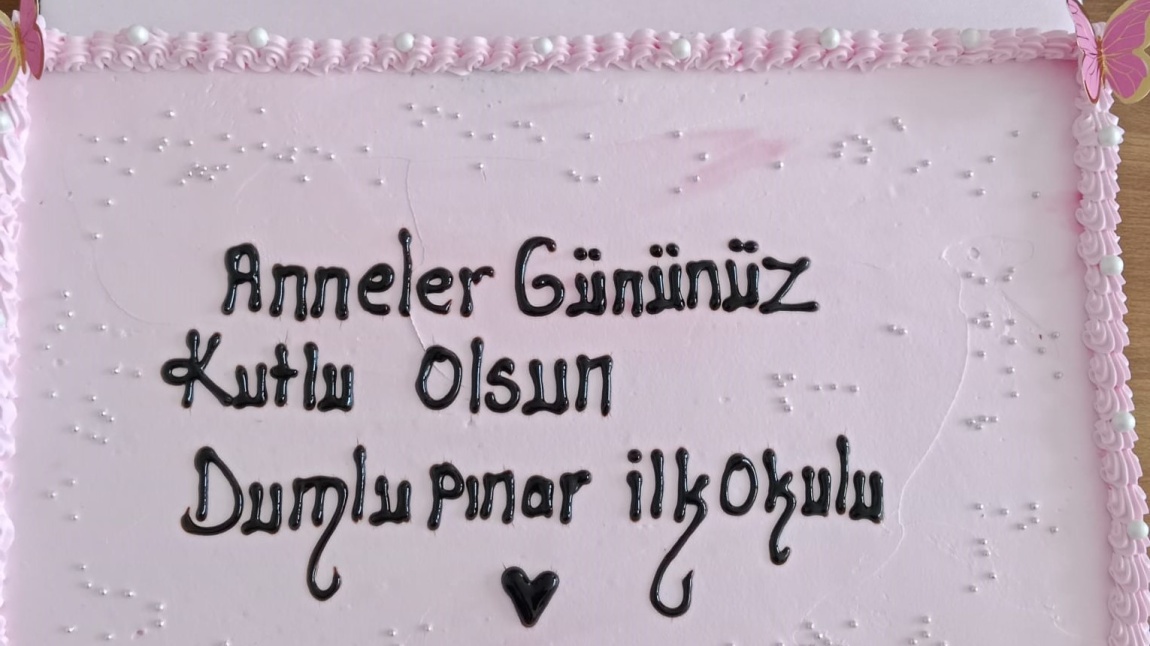 Anneler Gününüz
Kutlu Olsun
Dumlupınar ilkokulu